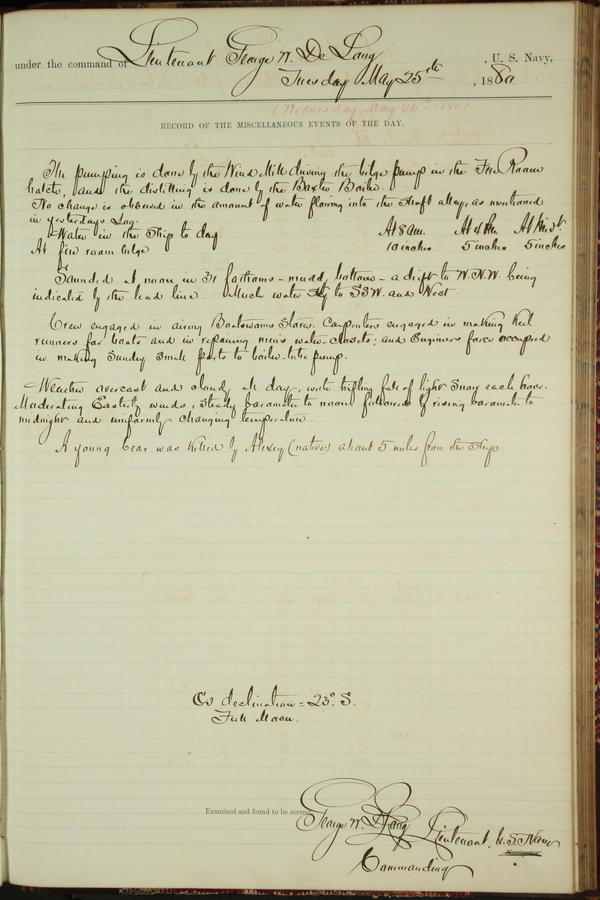 under the command of Lieutenant George W. De Long, U. S. Navy,
Tuesday May 25th, 1880
(Wednesday, May 26th 1880)
RECORD OF THE MISCELLANEOUS EVENTS OF THE DAY.
The pumping is done by the Wind Mill driving the bilge pump in the Fire Room
hatch, and the distilling is done by the Baxter Boiler.
No change is observed in the amount of water flowing into the Shaft alley, as mentioned
in yesterdays Log.
Water in the Ship to day At 8 am. At 4 Pm. At Mid't.
At fire room bilge 10 inches 5 inches 5 inches
Sounded at noon in 31 fathoms - muddy bottom - a drift to W.N.W. being
indicated by the lead line. Much water sky to SSW. and West.
Crew engaged in airing Boatswains Stores. Carpenters engaged in making keel
runners for boats and in repairing men's water closets; and Engineers force occupied
in making Sundry Small parts to boiler-tube pump.
Weather overcast and cloudy all day, with trifling fall of light Snow each hour.
Moderating Easterly winds, steady barometer to noon followed by rising barometer to
midnight and uniformly changing temperature.
A young bear was killed by Alexey (native) about 5 miles from the Ship
declination = 23° S.
Full Moon.
Examined and found to be correct.
George W. De Long Lieutenant, U. S. Navy
Navigator.
Commanding